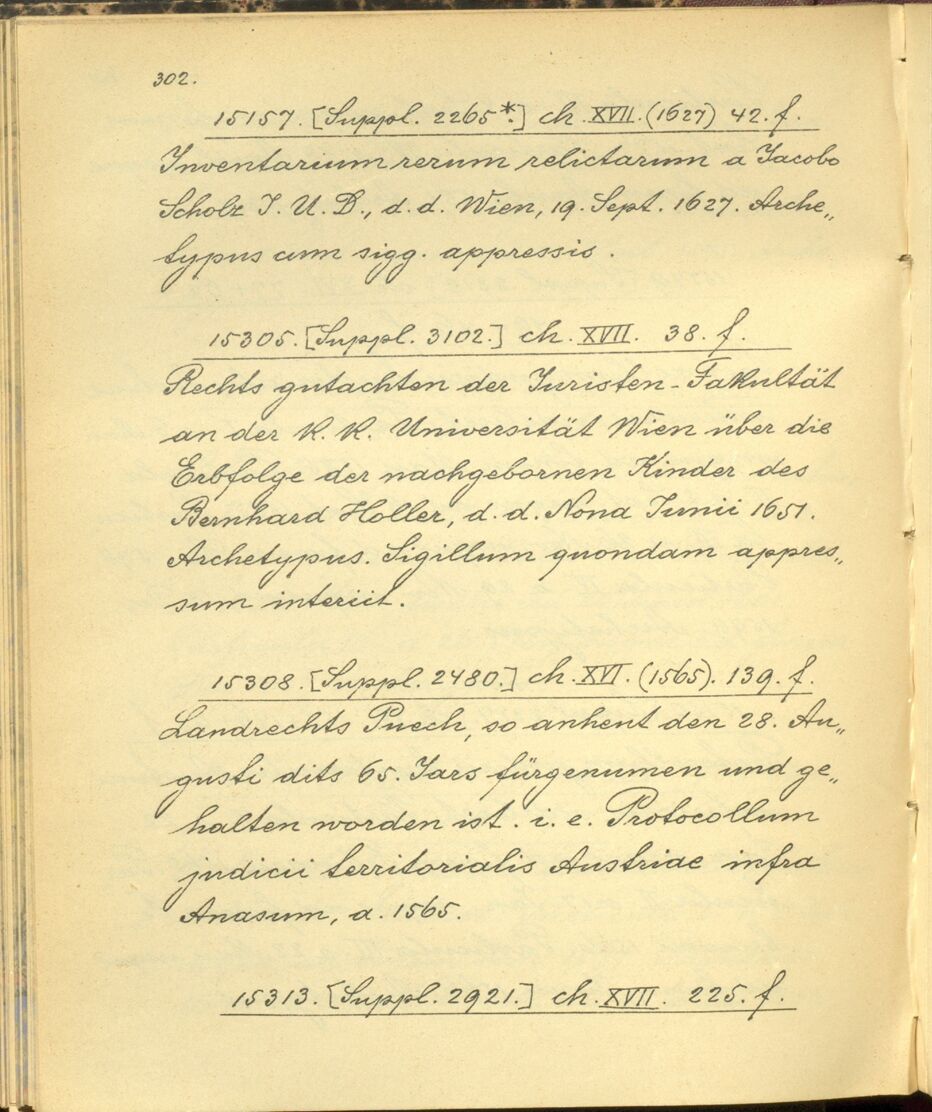 302.
15157. [Suppl. 2265*.] ch. XVII. (1627) 42. f.
Inventarium rerum relictarum a Jacobo
Scholz J. U. D., d. d. Wien, 19. Sept. 1627. Arche„
typus cum sigg. appressis.
15305. [Suppl. 3102.] ch. XVII. 38. f.
Rechts gutachten der Juristen-Fakultät
an der k. k. Universität Wien über die
Erbfolge der nachgebornen Kinder des
Bernhard Holler, d. d. Nona Junii 1651.
Archetypus. Sigillum quondam appres„
sum interiit.
15308. [Suppl. 2480.] ch. XVI. (1565). 139. f.
Landrechts Puech, so anhent den 28. Au„
gusti dits 65. Jars fürgenumen und ge„
halten worden ist. i. e. Protocollum
judicii territorialis Austriae infra
Anasum, a. 1565.
15313. [Suppl. 2921.] ch. XVII. 225. f.